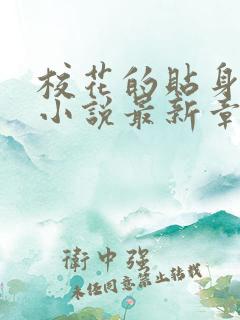 校花的貼身
小説最新章
衛中強
未经同意禁止转载